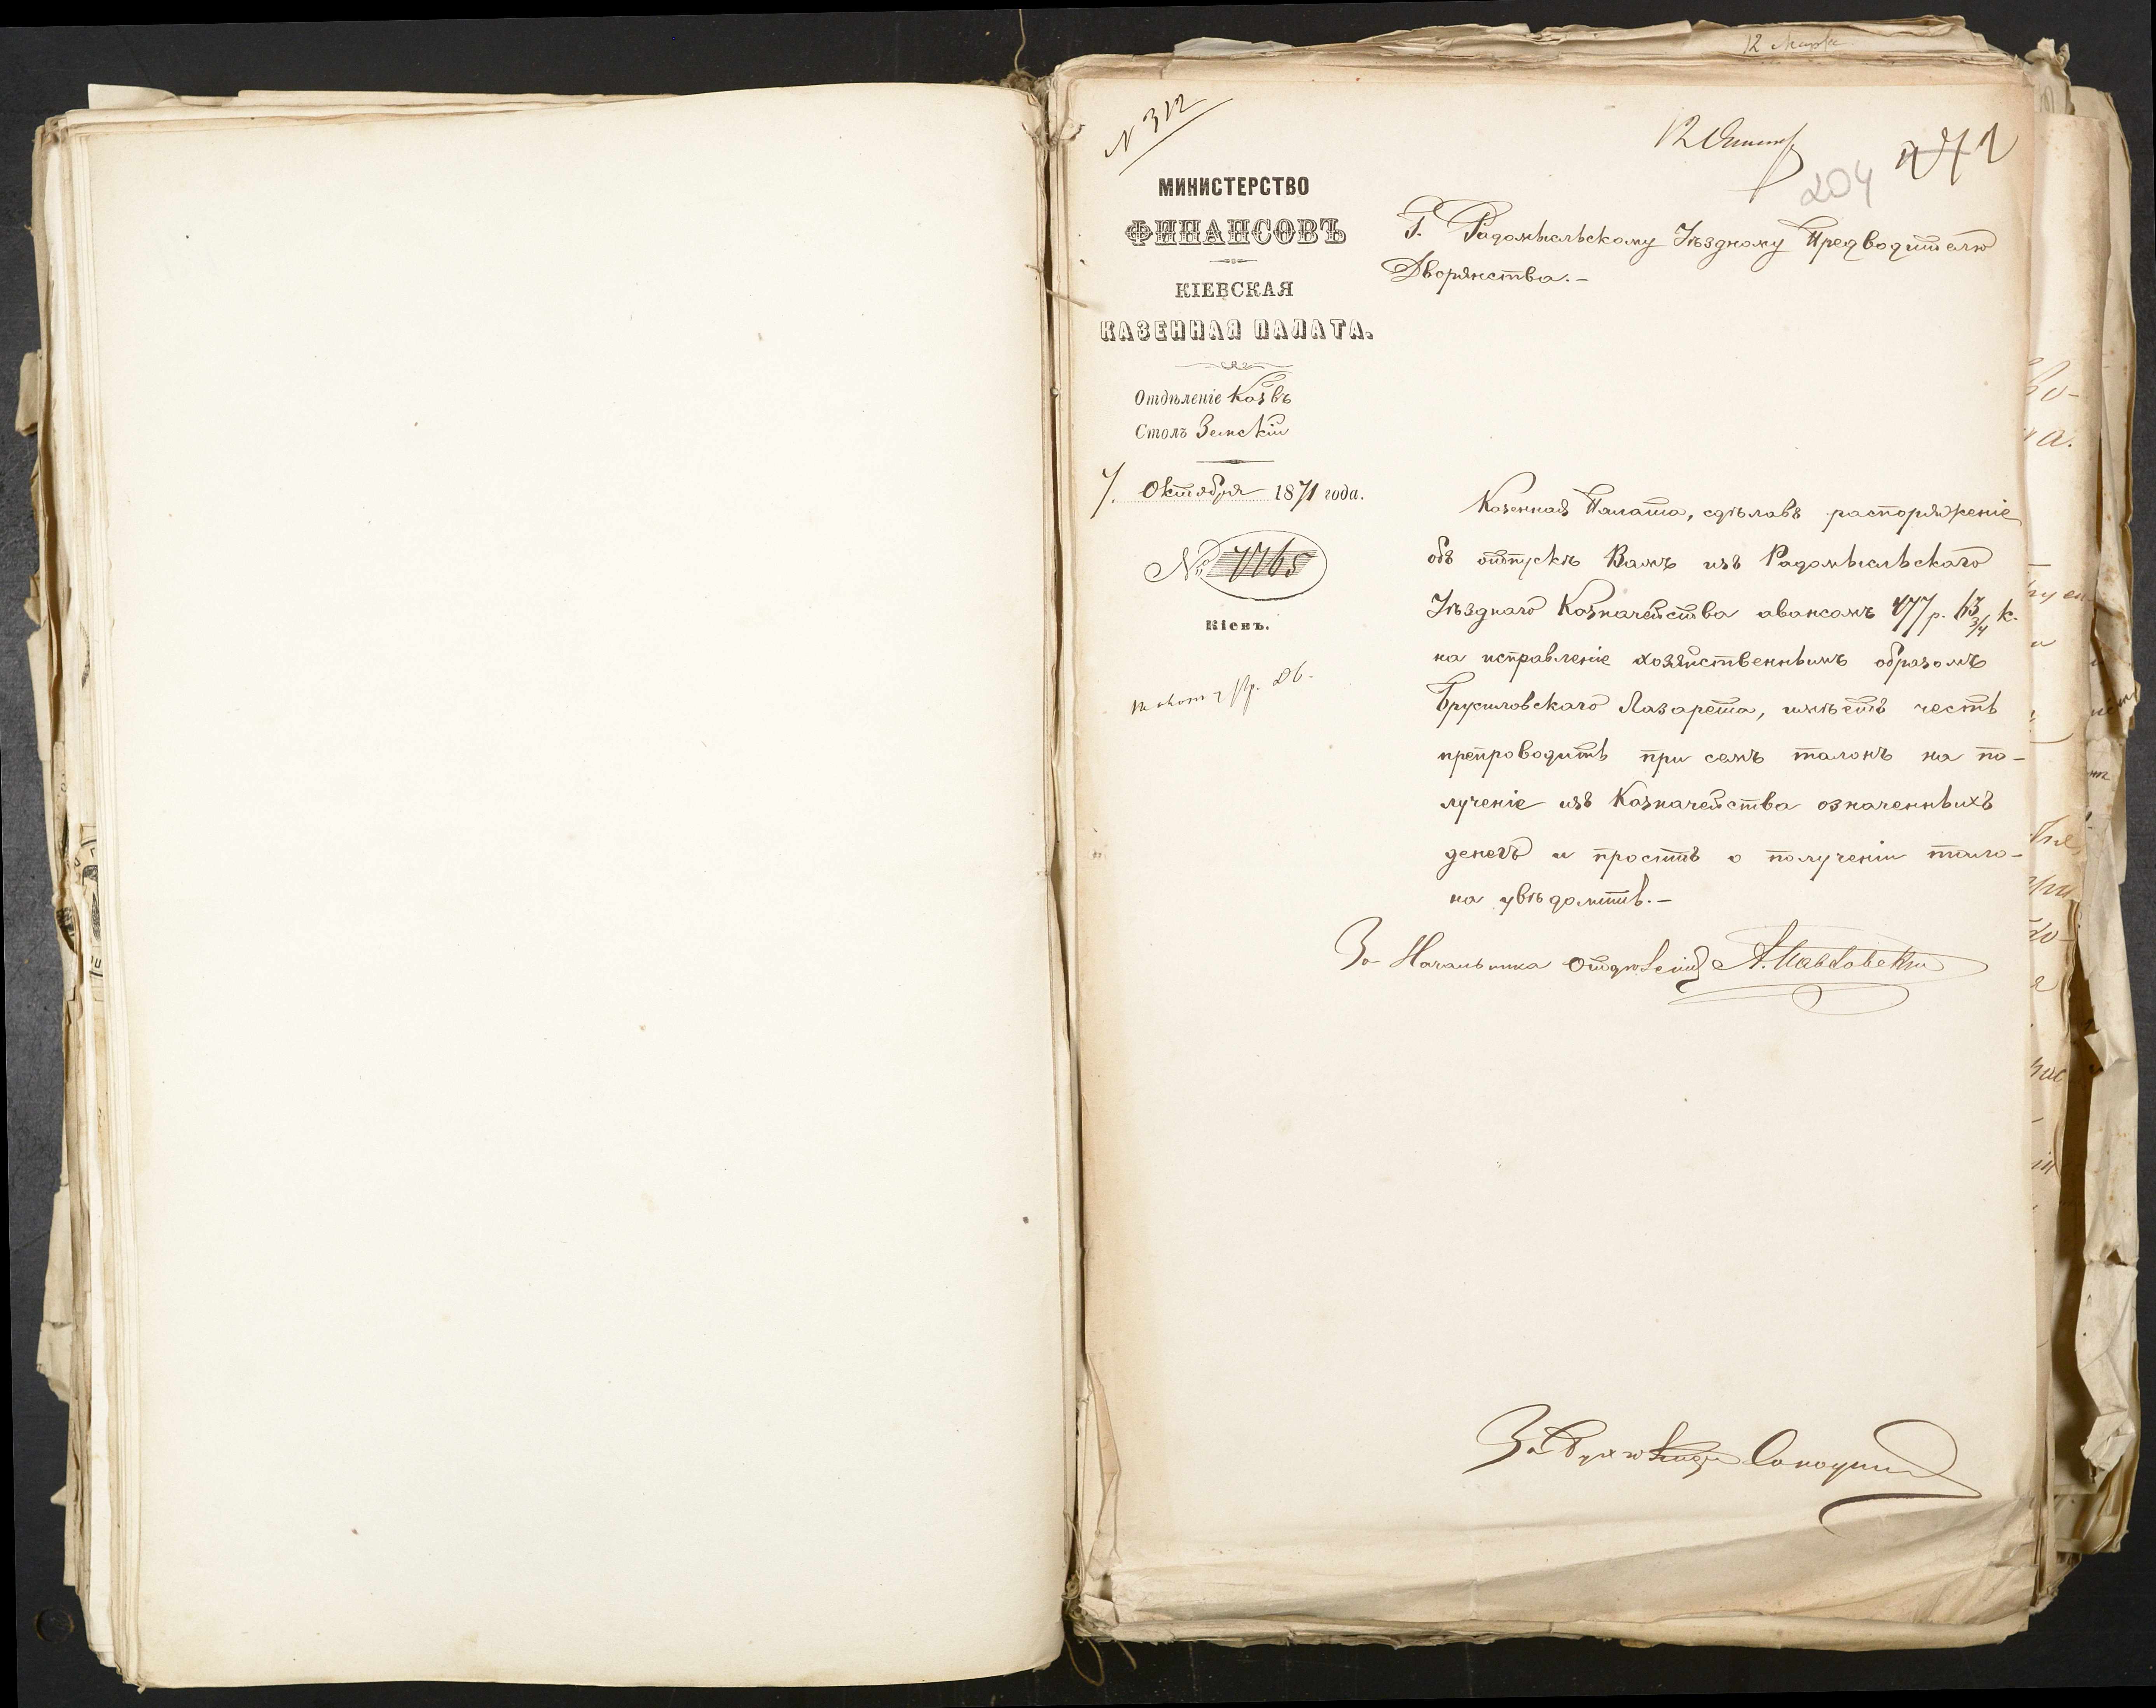 12 Марта
N 312
12 Октяб
204
МИНИСТЕРСТВО
ФИНАНСОВЪ
КІЕВСКАЯ
КАЗЕННАЯ ПАЛАТА.
Отдѣленіе Каз въ
Столъ Земскій
7. Октября 1871 года.
№ 7765
Кіевъ.
Г. Радомысльскому Уѣздному Предводителю
Дворянства.-
Казенная Палата, сдѣлавъ распоряженіе
объ отпускѣ Вамъ изъ Радомысльскаго
Уѣзднаго Казначейства авансомъ 477 р. 63 3/4 к.
на исправленіе хозяйственнымъ образомъ
Брусиловскаго Лазарета, имѣетъ честь
препроводить при семъ талонъ на по-
лученіе изъ Казначейства означенныхъ
денегъ и проситъ о полученіи тало-
на увѣдомить.-
За Начальника Отдѣленія
За